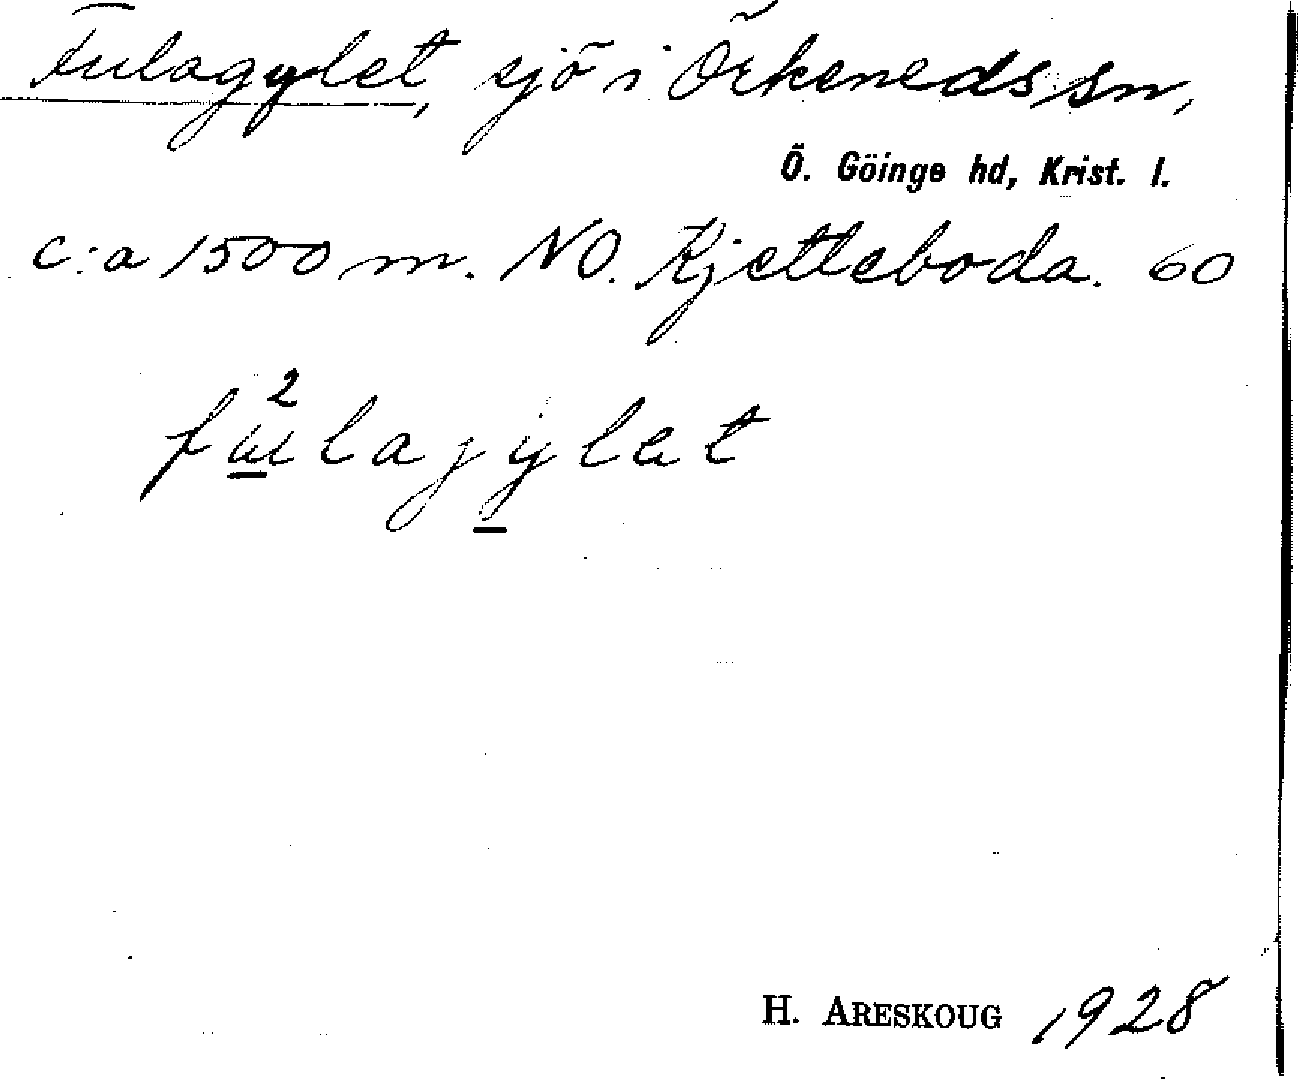 Fulagylet, sjö i Örkeneds sn,
Ö. Göinge hd, Krist. l.
c:a 1500 m. NO. Kjetteboda. 60
H. ARESKOUG 1928